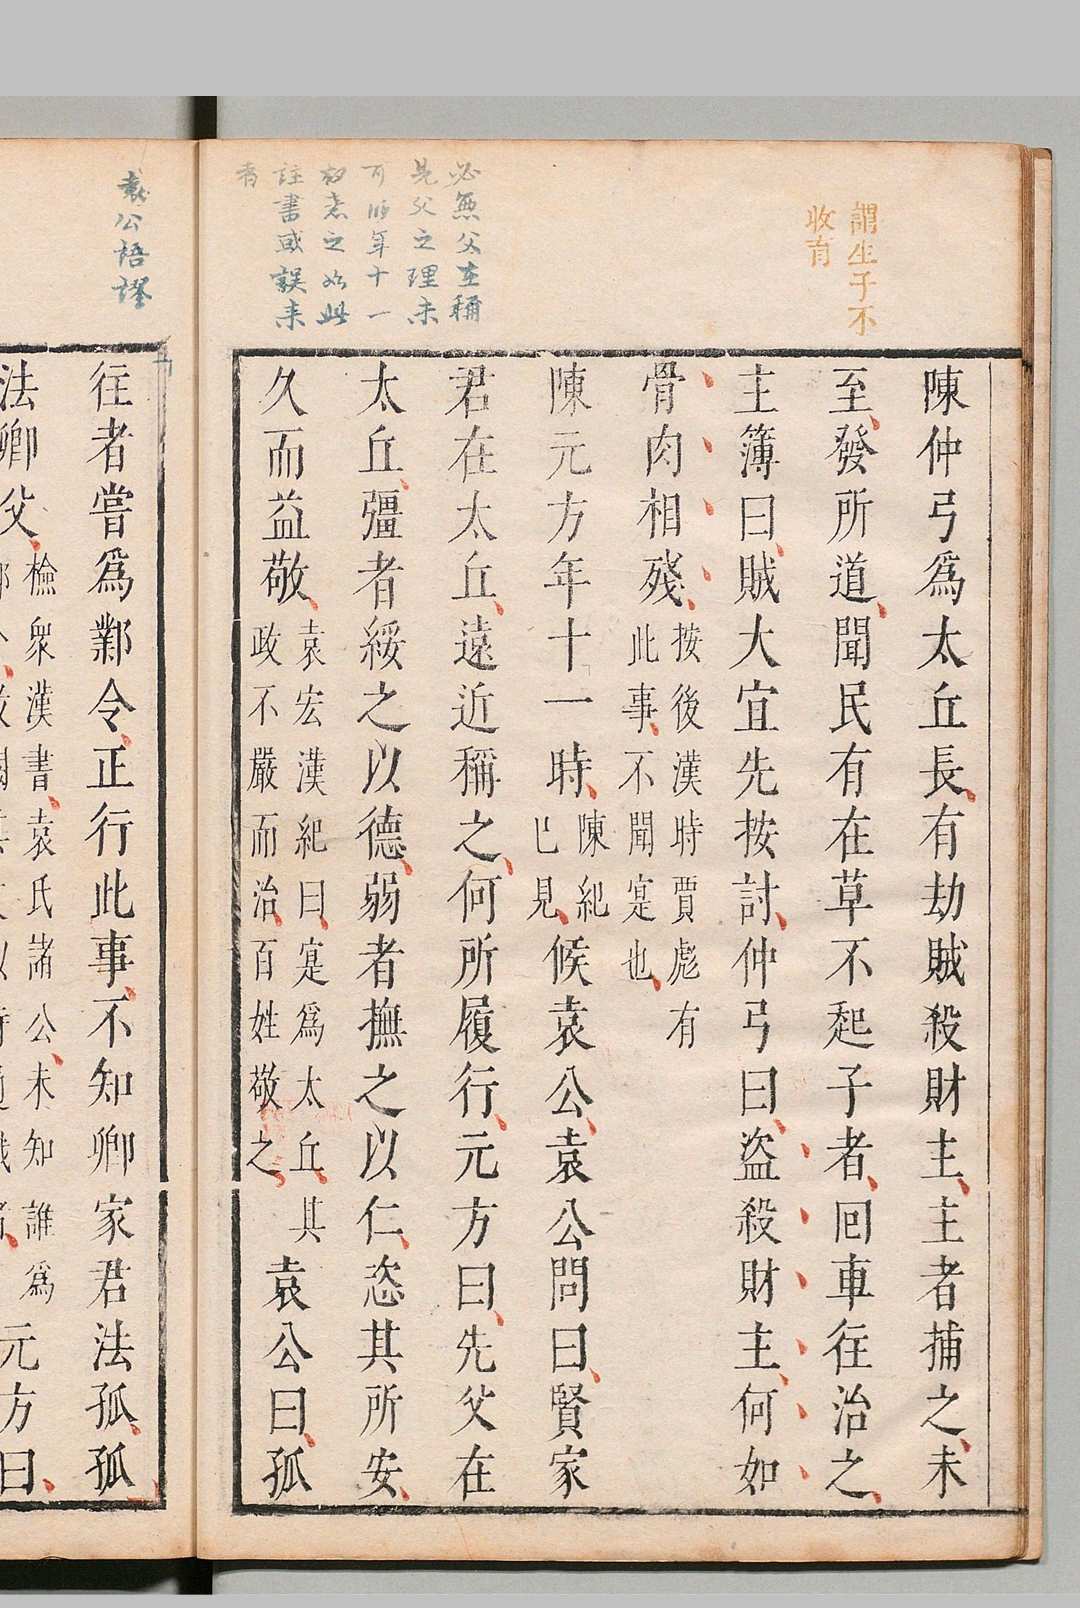 謂生子不
收育
陳仲弓爲太丘長有劫賊殺財主主者捕之未
至發所道聞民有在草不起子者回車往治之
主簿曰賊大宜先按討仲弓曰盜殺財主何如
骨肉相殘
按後漢時賈彪有
此事不聞寔也
必無父在稱
先父之理未
可
年十一
註書或誤来
者
陳元方年十一時
陳紀
已見
候袁公袁公問曰賢家
君在太丘遠近稱之何所履行元方曰先父在
太丘彊者綏之以德弱者撫之以仁恣其所安
久而益敬
袁宏漢紀曰寔爲太丘其
政不嚴而治百姓敬之
袁公曰孤
袁公語謬
往者嘗爲鄴令正行此事不知卿家君法孤孤
法卿父
檢衆漢書袁氏諸公未知誰爲
元方曰